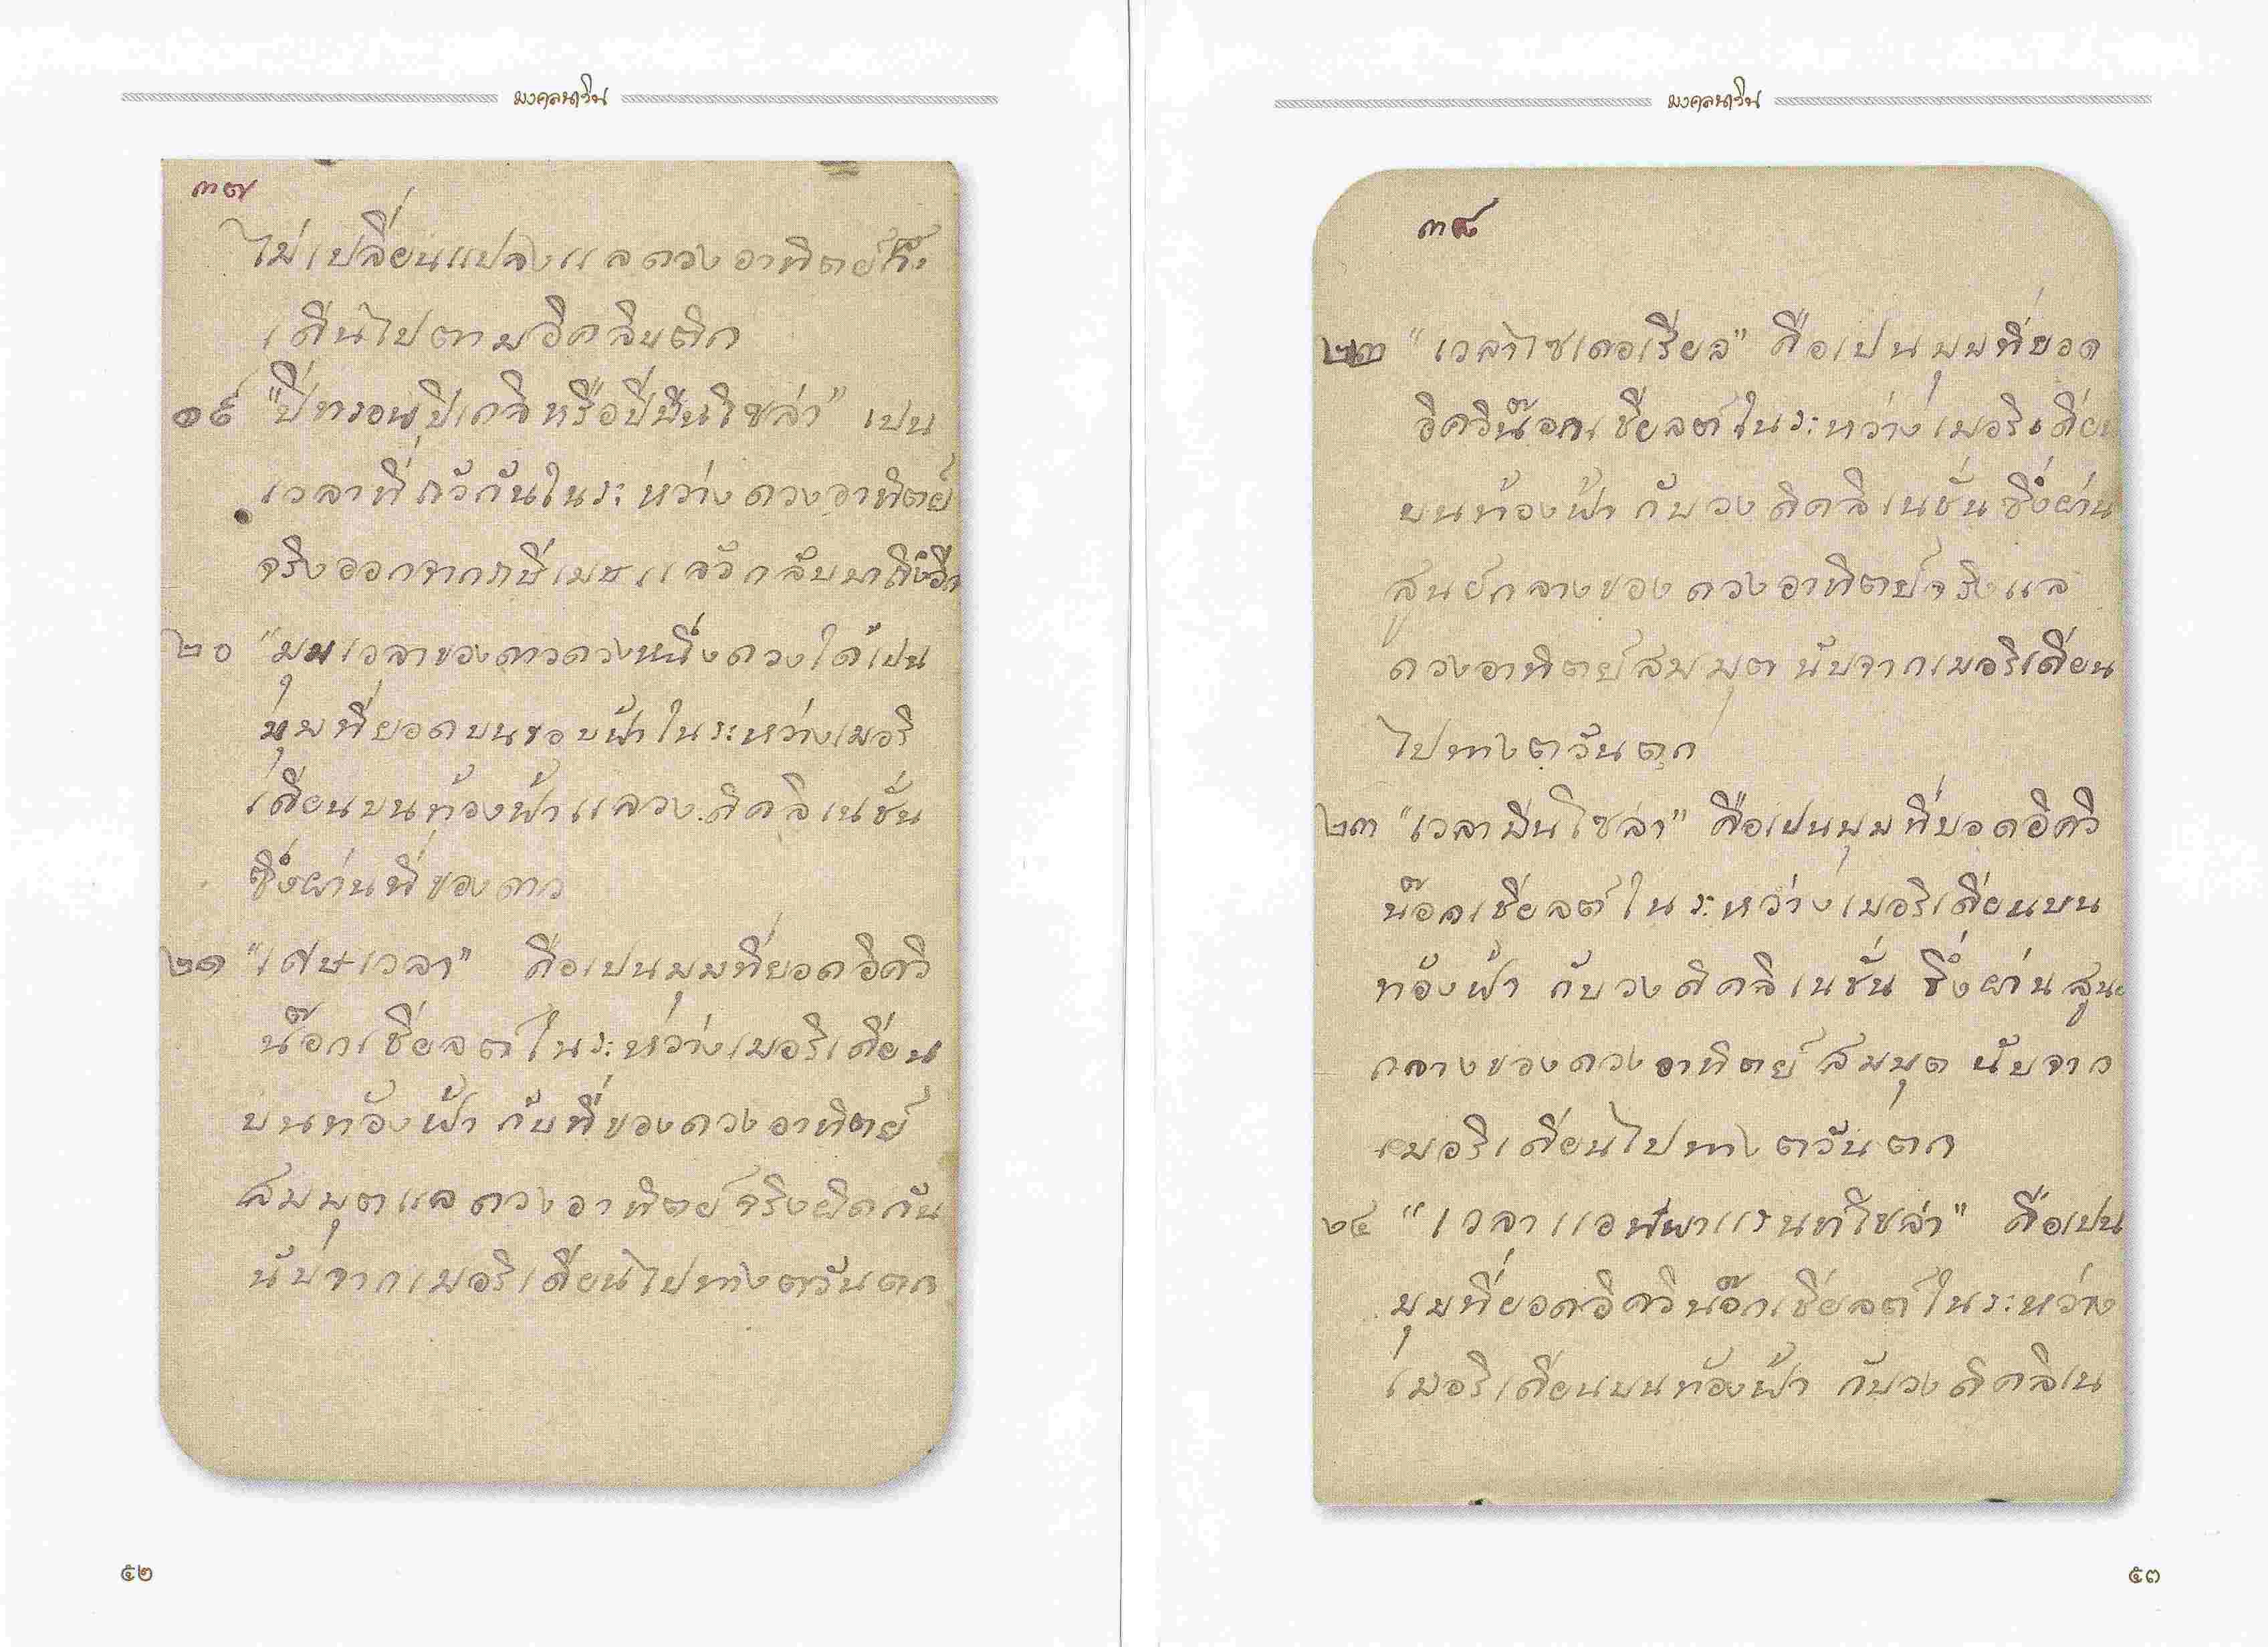 มงคลนาวิน
๓๗
ไม่เปลี่ยนแปลงแลดวงอาทิตย์ก็
เดินไปตามอิคลิบติก
๑๙ "ปีทรอบปิเกลิหรือปีมีนโซล่า" เปน
เวลาที่กวักันในระหว่างดวงอาทิตย์
จริงออกจากราษีเมษแลวักลับมาถึงอีก
๒๐ "มุมเวลาของดาวดวงหนึ่งดวงใดเปน
มุมที่ยอดบนขอบฟ้าในระหว่างเมอริ
เดียนบนท้องฟ้าแลวงดิคลิเนชั่น
ซึ่งผ่านที่ของดาว
๒๑ "เศษเวลา" คือเปนมุมที่ยอดอิควิ
น๊อกเชียลต์ในระหว่างเมอริเดียน
บนท้องฟ้า กับที่ของดวงอาทิตย์
สมมุตแลดวงอาทิตย์จริงผิดกัน
นับจากเมอริเดียนไปทางตวันตก
๕๒
มงคลนาวิน
๓๘
๒๒ "เวลาไซเดอเรียล" คือเปนมุมที่ยอด
อิควิน๊อกเชียลต์ในระหว่างเมอริเดียน
บนท้องฟ้า กับวงดิคลิเนชั่นซึ่งผ่าน
สูนย์กลางของดวงอาทิตย์จริงแล
ดวงอาทิตย์สมมุต นับจากเมอริเดียน
ไปทางตวันตก
๒๓ "เวลามีนโซล่า" คือเปนมุมที่ยอดอิควิ
น๊อกเชียลต์ในระหว่างเมอริเดียนบน
ท้องฟ้า กับวงดิคลิเนชั่น ซึ่งผ่านสูนย
กลางของดวงอาทิตย์สมมุต นับจาก
เมอริเดียนไปทางตวันตก
๒๔ "เวลาแอพพาแรนทโซล่า" คือเปน
มุมที่ยอดอิควิน๊อกเชียลต์ในระหว่าง
เมอริเดียนบนท้องฟ้า กับวงดิคลิเน
๕๓